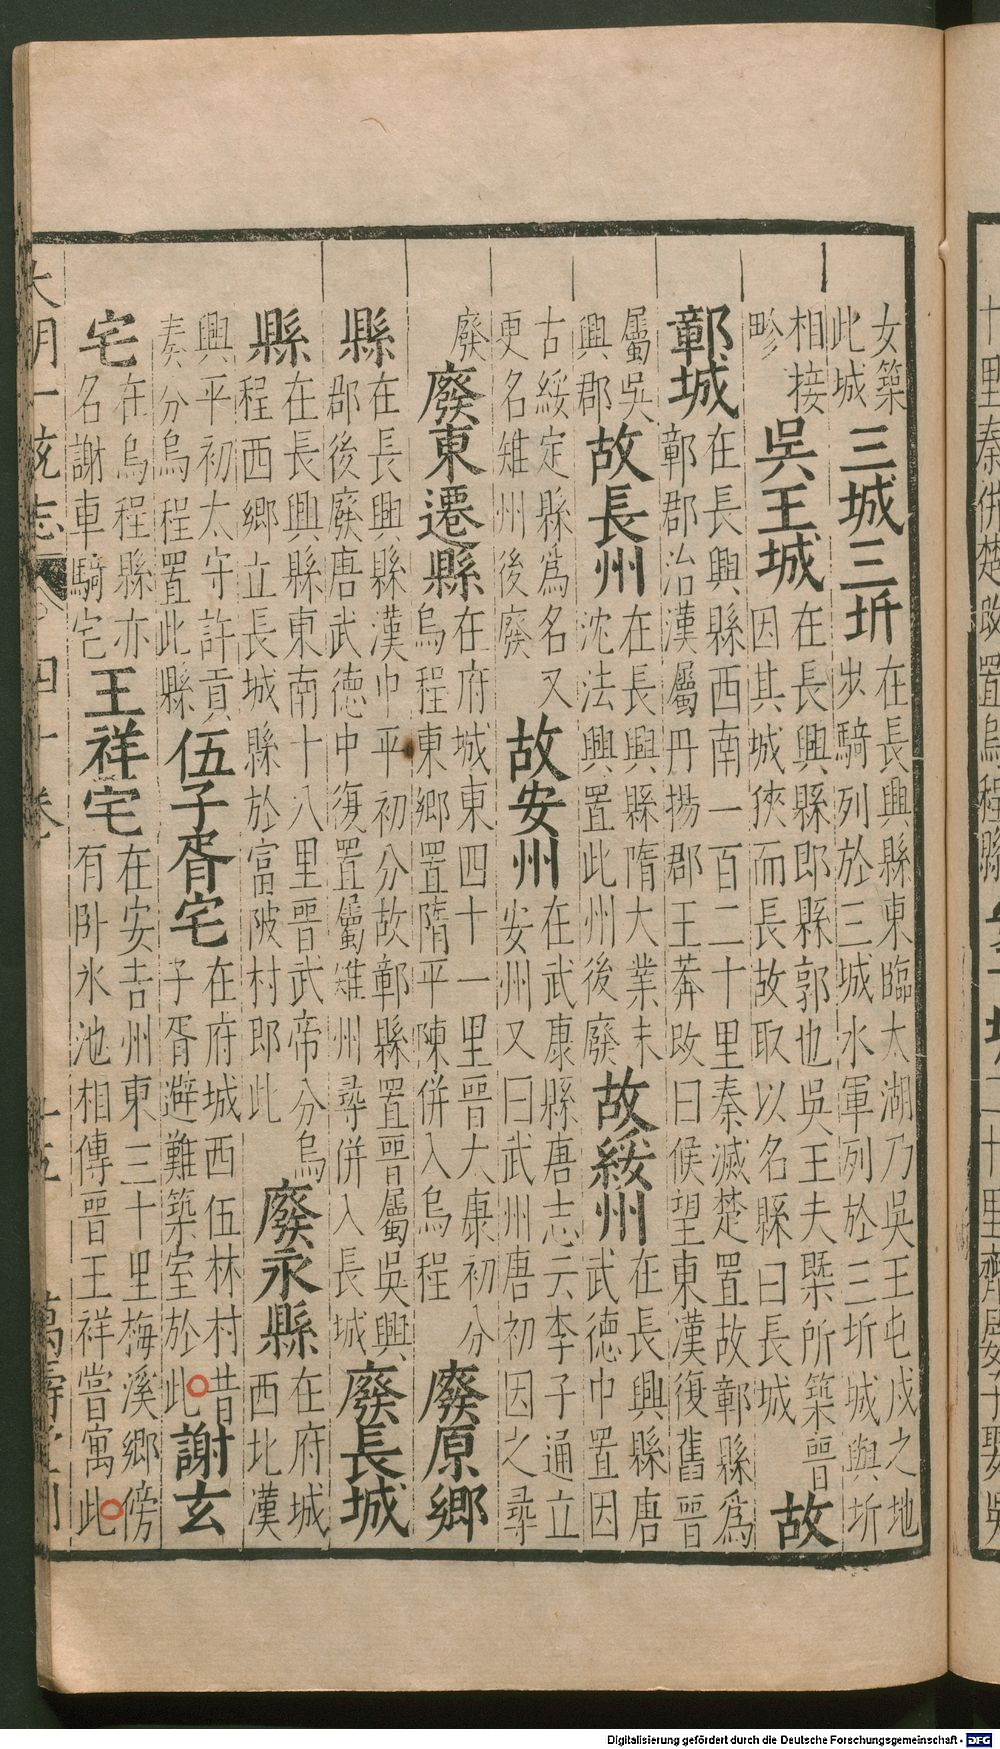 女築
此城
三城三圻
在長興縣東臨太湖乃吳王屯戍之地
步騎列於三城水軍列於三圻城與圻
相接
畛
吳王城
在長興縣郎縣郭也吳王夫槩所築晉
因其城狹而長故取以名縣曰長城
故
鄣城
在長興縣西南一百二十里秦滅楚置故鄣縣爲
鄣郡治漢屬丹揚郡王莾改曰候望東漢復舊晉
屬吳
興郡
故長州
在長興縣隋大業末
沈法興置此州後廢
故綏州
在長興縣唐
武德中置因
古綏定縣爲名又
更名雉州後廢
故安州
在武康縣唐志云李子通立
安州又曰武州唐初因之尋
廢
廢東遷縣
在府城東四十一里晉大康初分
烏程東鄉置隋平陳併入烏程
廢原鄉
縣
在長興縣漢中平初分故鄣縣置晉屬吳興
郡後廢唐武德中復置屬雉州尋併入長城
廢長城
縣
在長興縣東南十八里晉武帝分烏
程西鄉立長城縣於富陂村郎此
廢永縣
在府城
西北漢
興平初太守許貢
奏分烏程置此縣
伍子胥宅
在府城西伍林村昔
子胥避難築室於此
謝玄
宅
在烏程縣亦
名謝車騎宅
王祥宅
在安吉州東三十里梅溪鄉傍
有卧氷池相傳晉王祥嘗寓此
大明一统志 四十卷 十五 萬壽堂刊
Digitalisierung gefördert durch die Deutsche Forschungsgemeinschaft - DFG